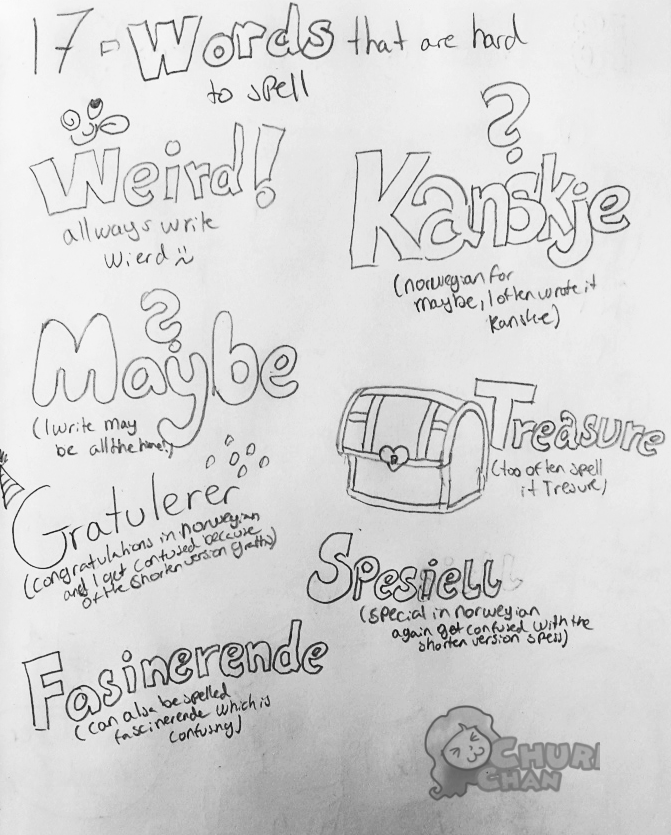 17 - Words that are hard
to spell
Weird!
allways write
wierd
Kanskje
(norwegian for
maybe, I often wrote it
kanskie)
Maybe
(I write may
be all the time!)
Treasure
(too often spell
it Tresure)
Gratulerer
(congratulations in norwegian
and I get confused because
of the shorten version gratts)
Spesiell
(special in norwegian
again get confused with the
shorten version spess)
Fasinerende
(can also be spelled
fascinerende which is
confusng)
CHUR
CHAN